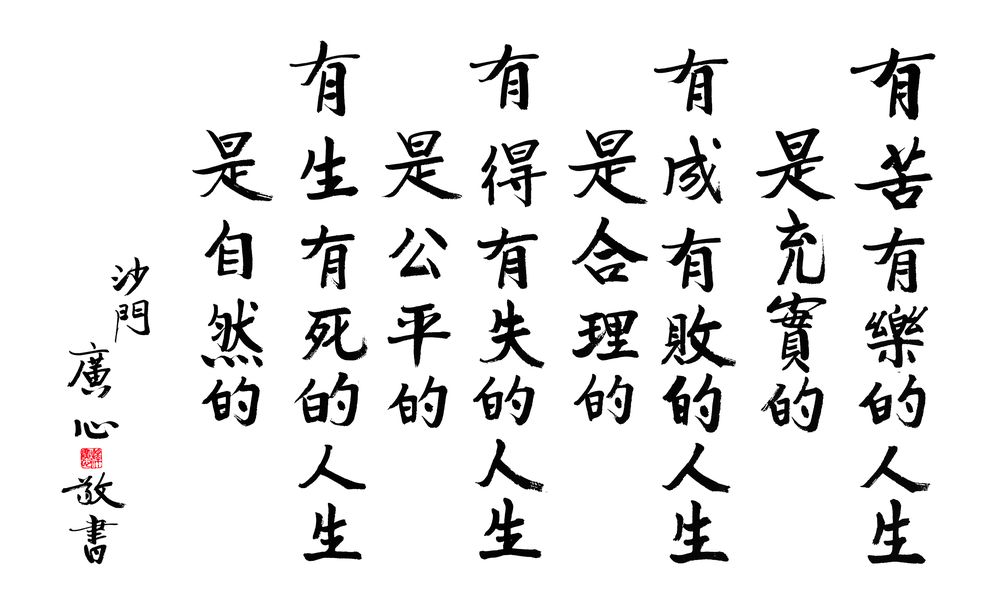 有苦有樂的人生
是充實的
有成有敗的人生
是合理的
有得有失的人生
是公平的
有生有死的人生
是自然的
沙門
廣心敬書